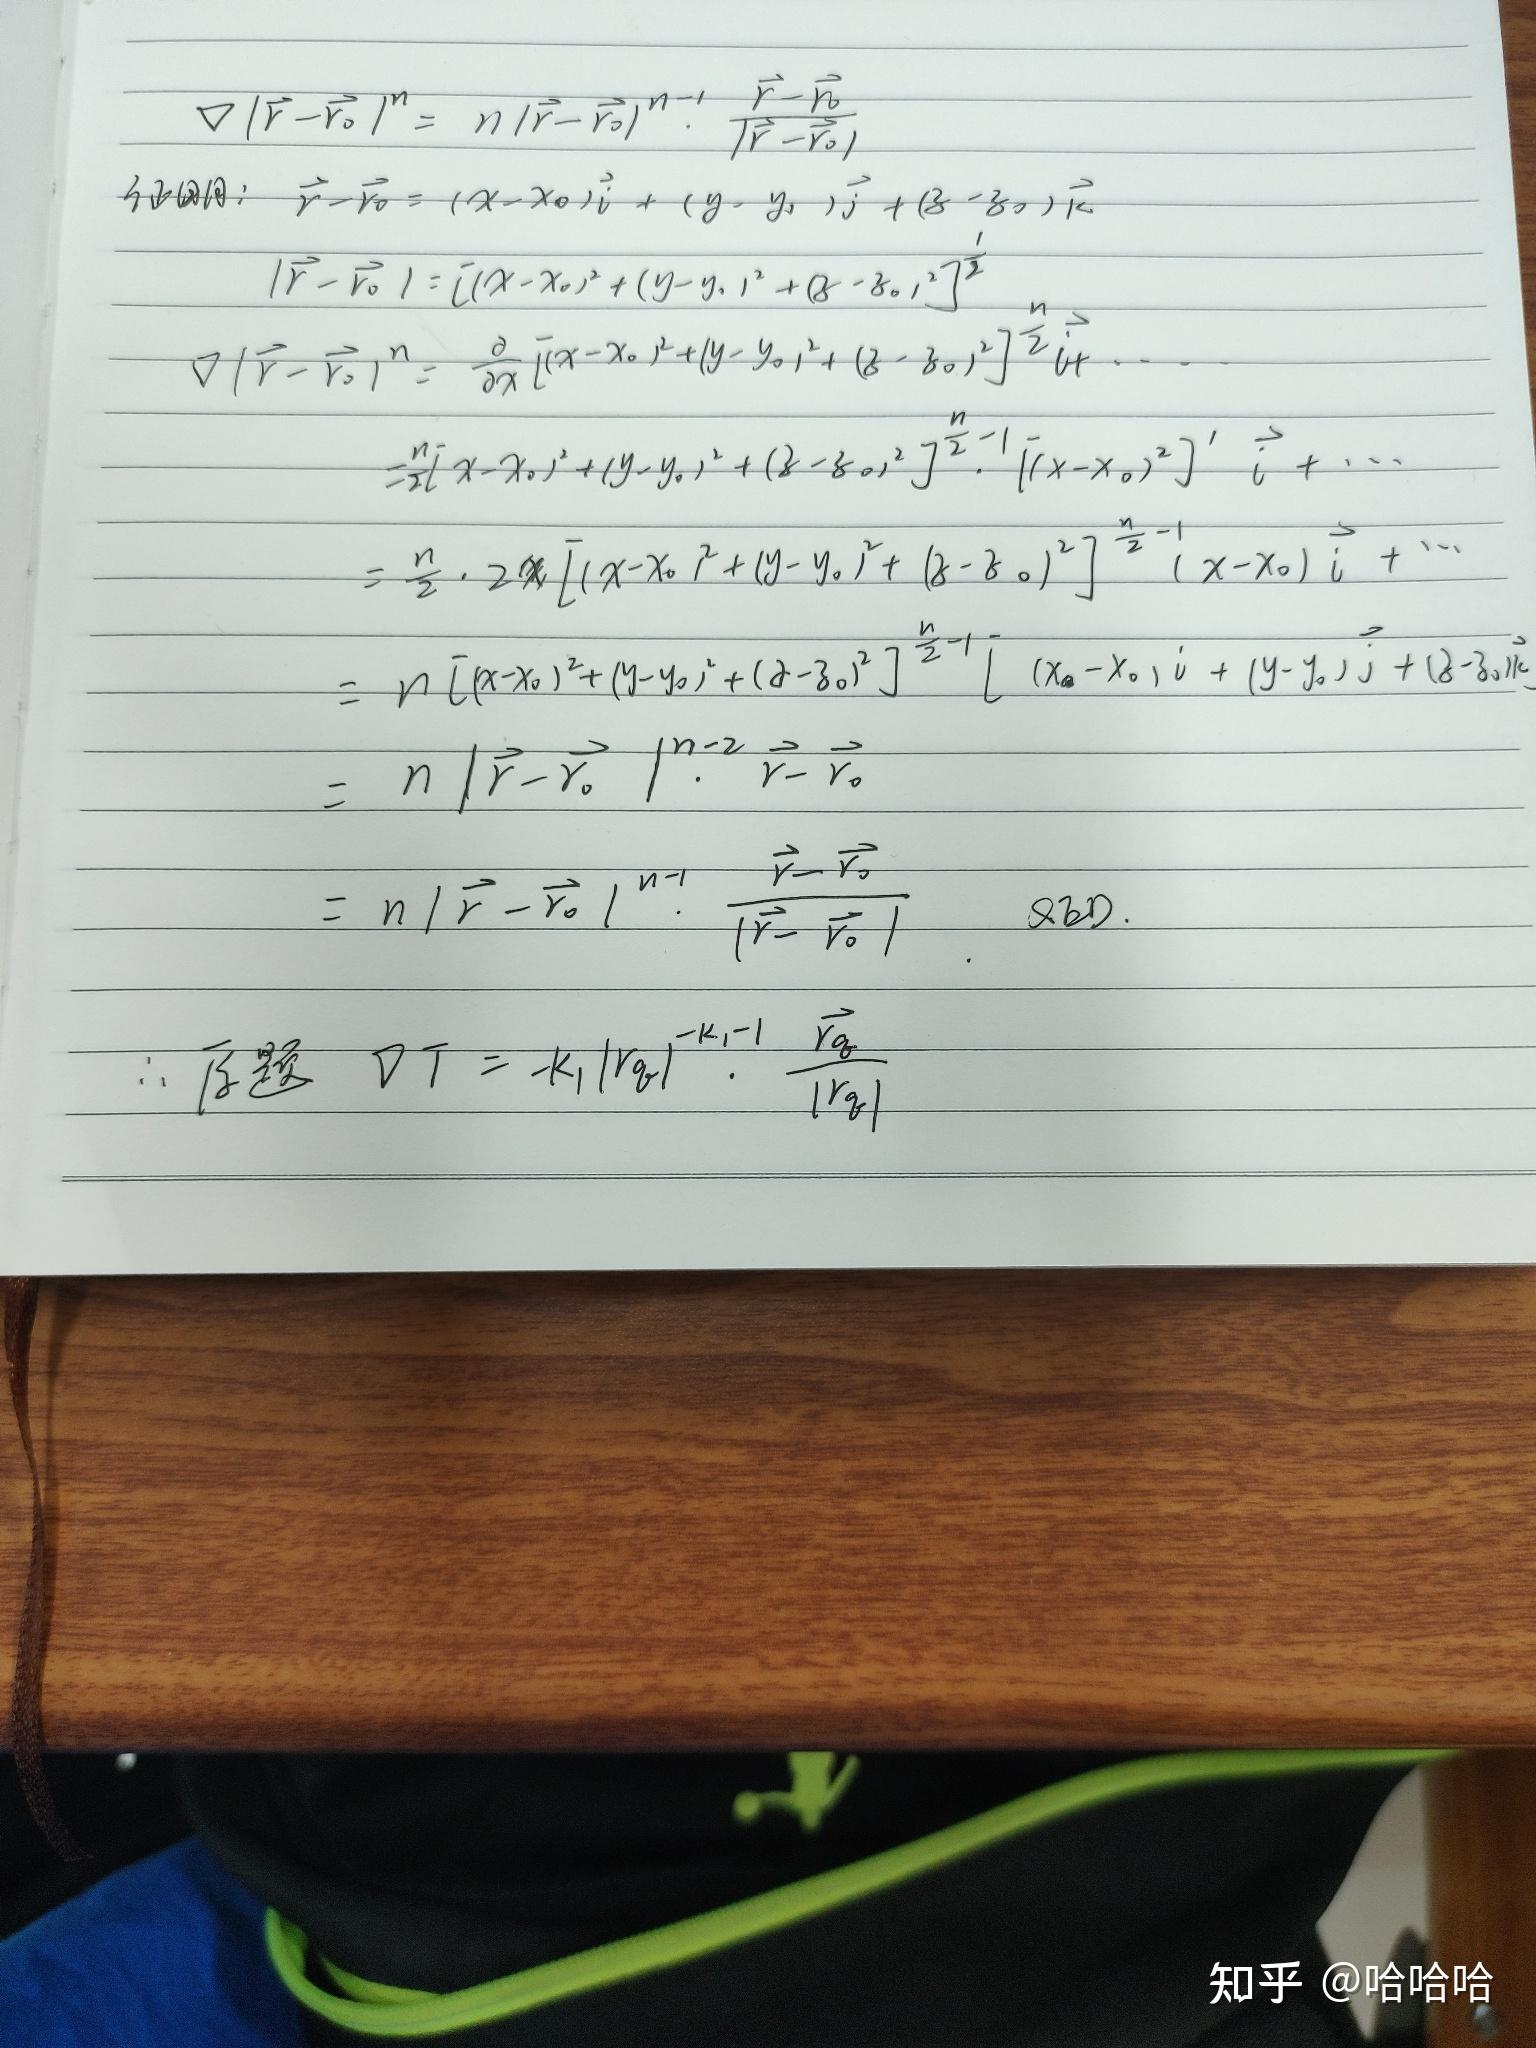 ∇|r⃗-r⃗₀|ⁿ = n|r⃗-r⃗₀|ⁿ⁻¹· (r⃗-r⃗₀)/|r⃗-r⃗₀|
证明: r⃗-r⃗₀ = (x-x₀)i⃗ + (y-y₀)j⃗ + (z-z₀)k⃗
|r⃗-r⃗₀| = [(x-x₀)²+(y-y₀)²+(z-z₀)²]^(1/2)
∇|r⃗-r⃗₀|ⁿ = ∂/∂x [(x-x₀)²+(y-y₀)²+(z-z₀)²]^(n/2) i⃗+ ......
= n/2[x-x₀)²+(y-y₀)²+(z-z₀)²]^(n/2-1)·[(x-x₀)²]' i⃗ + ...
= n/2 · 2 [(x-x₀)²+(y-y₀)²+(z-z₀)²]^(n/2-1) (x-x₀) i⃗ + ...
= n[(x-x₀)²+(y-y₀)²+(z-z₀)²]^(n/2-1) [(x-x₀)i + (y-y₀)j⃗ + (z-z₀)k⃗]
= n|r⃗-r⃗₀|ⁿ⁻²· r⃗-r⃗₀
= n|r⃗-r⃗₀|ⁿ⁻¹· (r⃗-r⃗₀)/|r⃗-r⃗₀| . QED.
∴ 原题 ∇T = -k₁|rq|^(-k₁-1) · r⃗q/|rq|
知乎 @哈哈哈